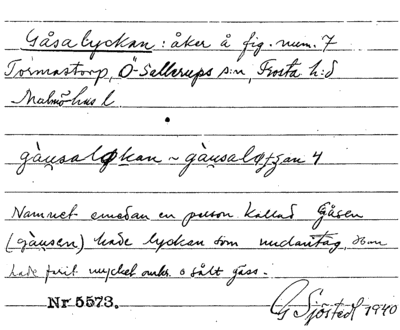 Gåsalyckan: åker å fig. num. 7
Tormastorp, Ö-Sallerups s:n, Frosta h:d
Malmöhus l
gàu̯salø̨kan ~ gàu̯salø̨ʒan 4
Namnet emedan en person kallad Gåsen
(gàu̯sen) hade lyckan som undantag, Han
hade förit mycket omkr. o sålt gäss.
Nr 5573.
G Sjöstedt 1940